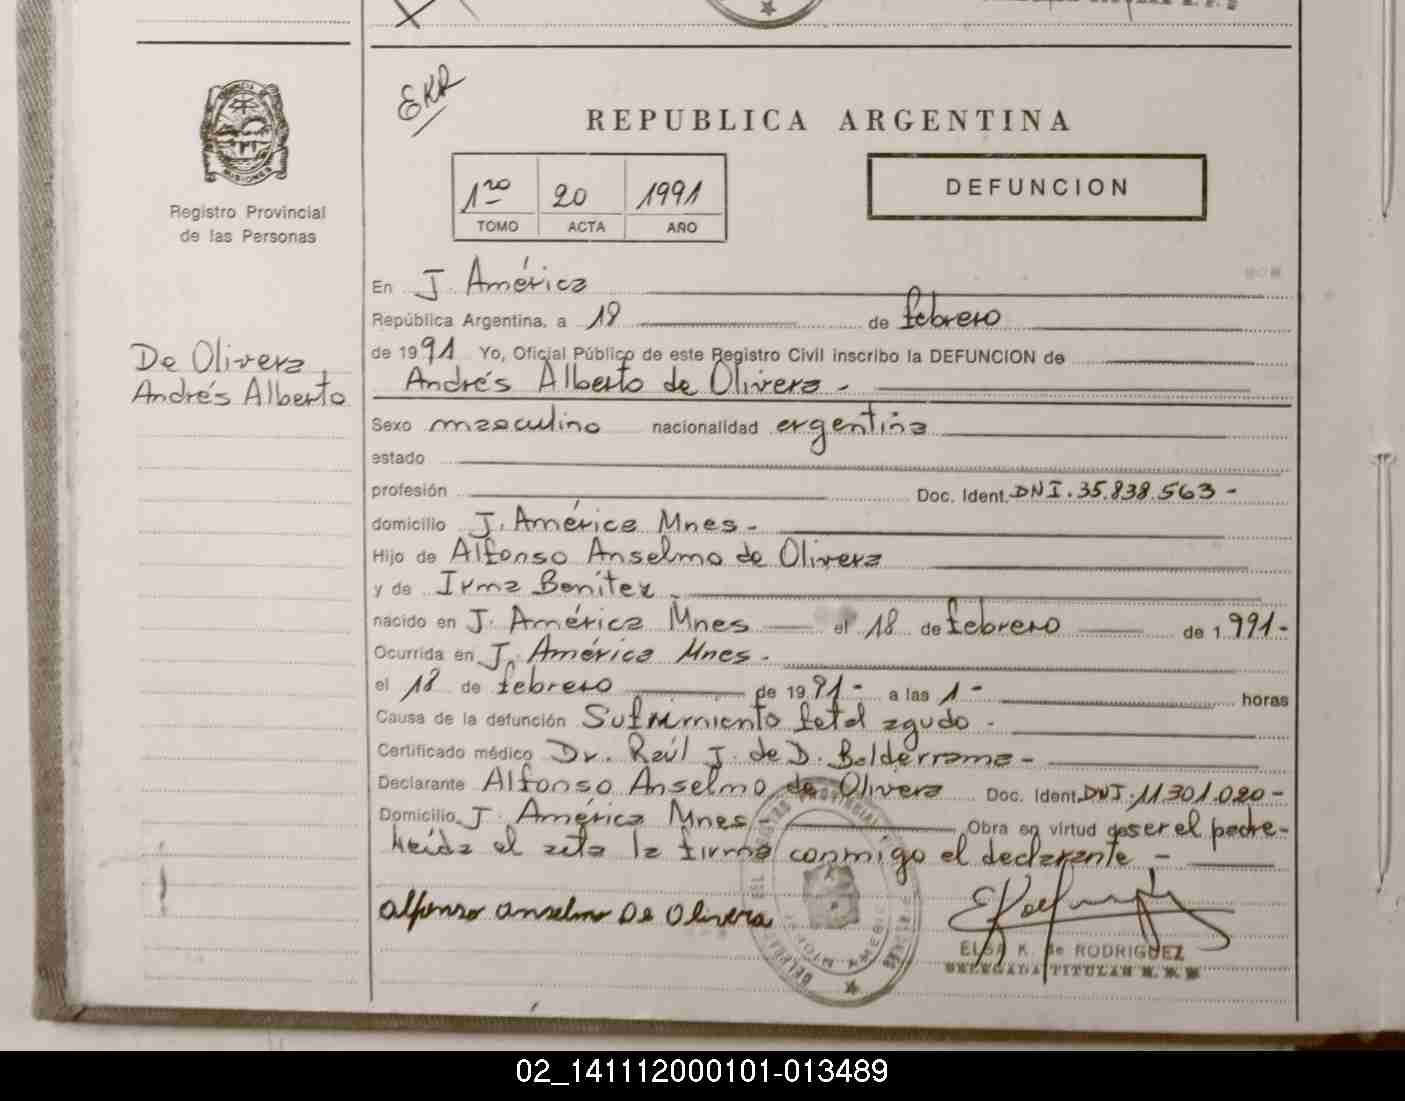 EKR
REPUBLICA ARGENTINA
1ro 20 1991
TOMO ACTA AÑO
DEFUNCION
MISIONES
Registro Provincial
de las Personas
De Olivera
Andrés Alberto
En J. América
República Argentina, a 18 de febrero
de 1991 Yo, Oficial Público de este Registro Civil inscribo la DEFUNCION de
Andrés Alberto de Olivera -
Sexo masculino nacionalidad argentina
estado
profesión Doc. Ident. DNI. 35.838.563 -
domicilio J. América Mnes -
Hijo de Alfonso Anselmo de Olivera
y de Irma Benítez
nacido en J. América Mnes el 18 de febrero de 1.991-
Ocurrida en J. América Mnes -
el 18 de febrero de 1991- a las 1- horas
Causa de la defunción Sufrimiento fetal agudo -
Certificado médico Dr. Raúl J. de D. Balderrama -
Declarante Alfonso Anselmo de Olivera Doc. Ident. DNI. 11.301.020 -
Domicilio J. América Mnes Obra en virtud de ser el padre -
leída el acta la firma conmigo el declarante -
Alfonso Anselmo De Olivera
ELSA K. de RODRIGUEZ
DELEGADA TITULAR
02_141112000101-013489